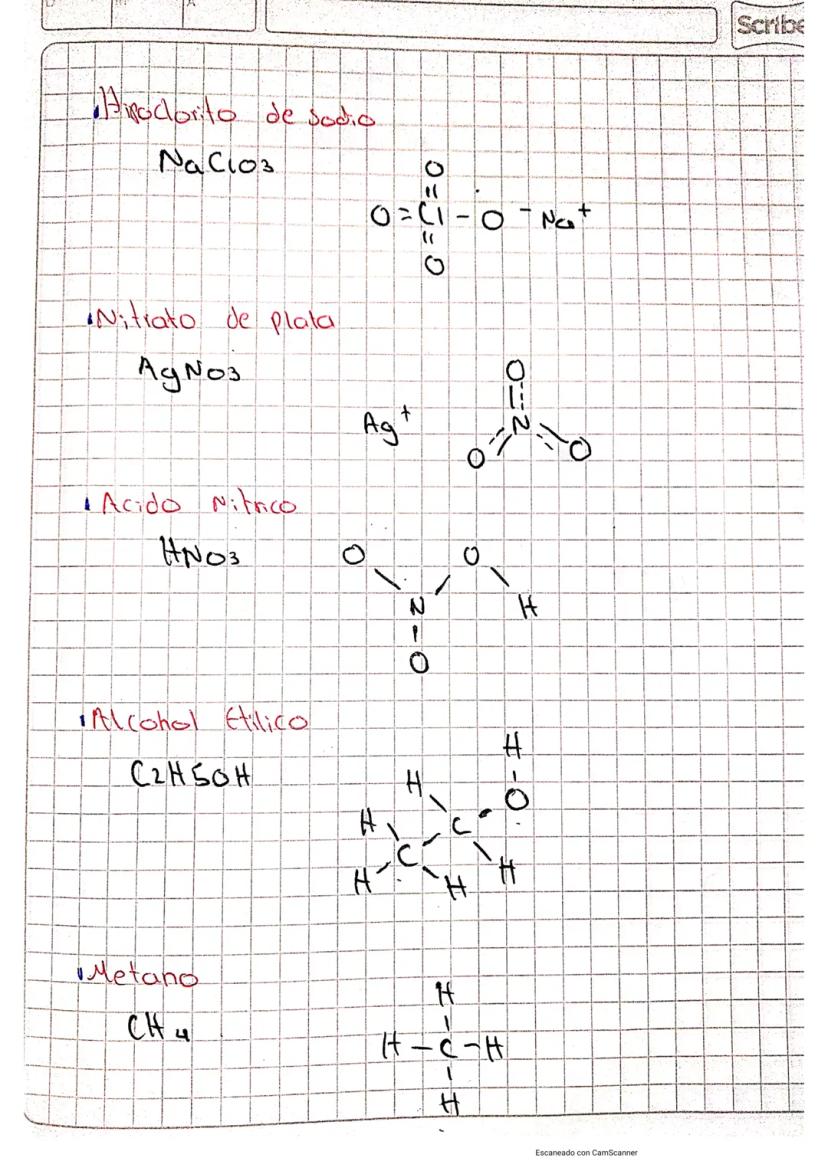 Scribe
Hipoclorito de sodio
NaClO3
O
=
O=Cl-O⁻Na⁺
=
O
Nitrato de plata
AgNO3
O
Ag⁺ N
O O
Acido Nitrico
HNO3
O O
N H
O
Alcohol Etilico
C2H5OH
H
H O
H C
C
H H H
Metano
CH4
H
H-C-H
H
Escaneado con CamScanner